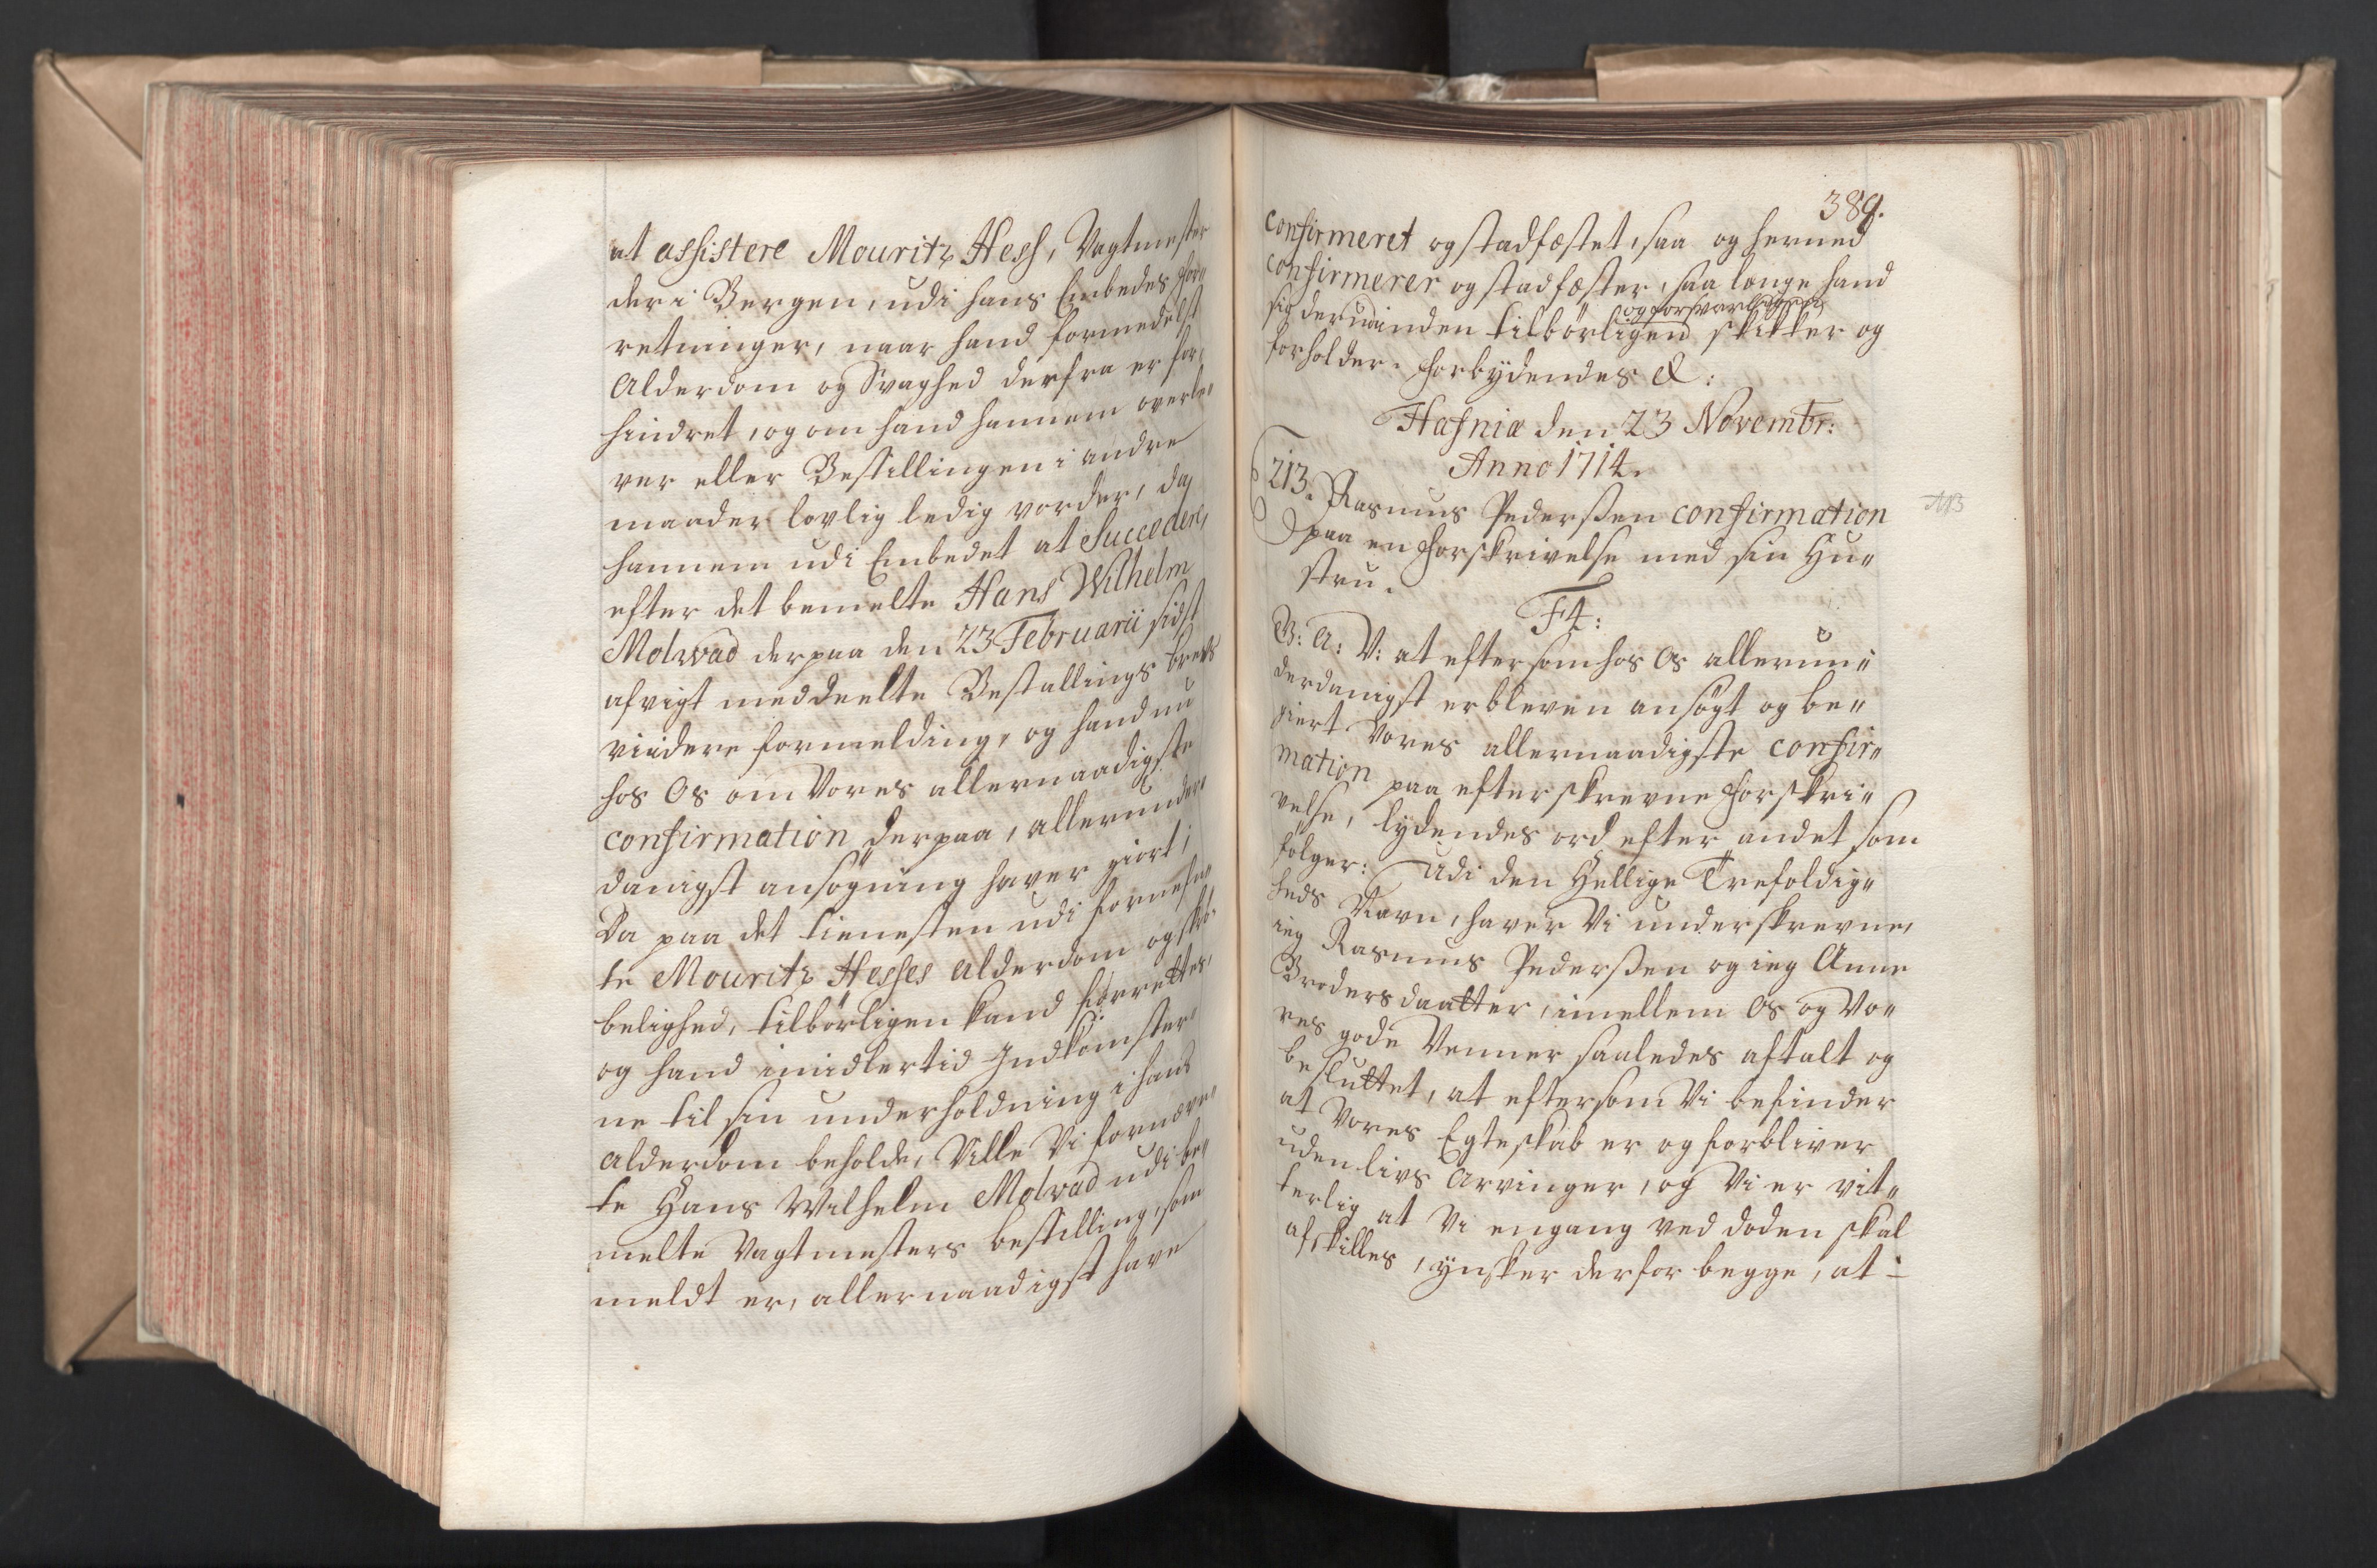 at assistere Mouritz Hess, Vagtmester
der i Bergen, udi hans Embedes for„
retninger, naar hand formedelst
Alderdom og Svaghed derfra er for„
hindret, og om hand hannem overle„
ver eller Bestillingen i andre
maader lovlig ledig vorder, da
hannem udi Embedet at Succedere,
efter det bemelte Hans Wilhelm
Molwad derpaa den 23 Februarii sidst
afvigt meddeelte Bestallings brevs
viidere formelding, og hand nu
hos Os om Vores allernaadigste
confirmation derpaa, allerunder„
danigst ansøgning haver giort;
Da paa det tienesten udi fornefn„
te Mouritz Hesses Alderdom og skrö„
belighed, tilbörligen kand forrettes,
og hand imidlertid Indkomster„
ne til sin underholdning i hans
Alderdom beholde, Ville Vi fornævn„
te Hans Wilhelm Molwad udi be„
melte Vagtmesters bestilling, som
meldt er, allernaadigst have
389.
confirmeret og stadfæstet, saa og hermed
confirmerer og stadfæster, saa longe hand
og forsvarligen
sig derudinden tilbörligen skikker og
forholder. Forbydendes &:
Hafniæ den 23 Novembr:
Anno 1714.
213. Rasmus Pederßen confirmation
paa en Forskrivelse med sin Hu„
stru.
F4:
G: A: V: at eftersom hos Os allerun„
derdanigst er bleven ansögt og be„
giert Vores allernaadigste confir„
mation paa efterskrevne Forskri„
velse, lydendes ord efter andet som
folger: Udi den Hellige Trefoldig„
heds Navn, haver Vi underskrevne,
ieg Rasmus Pederßen og ieg Anne
Brodersdaatter, imellem Os og Vo„
res gode Venner saaledes aftalt og
besluttet, at eftersom Vi befinder
at Vores Egteskab er og forbliver
uden livs Arvinger, og Vi er vit„
terlig at Vi engang ved doden skal
afskilles, ynsker derfor begge, at